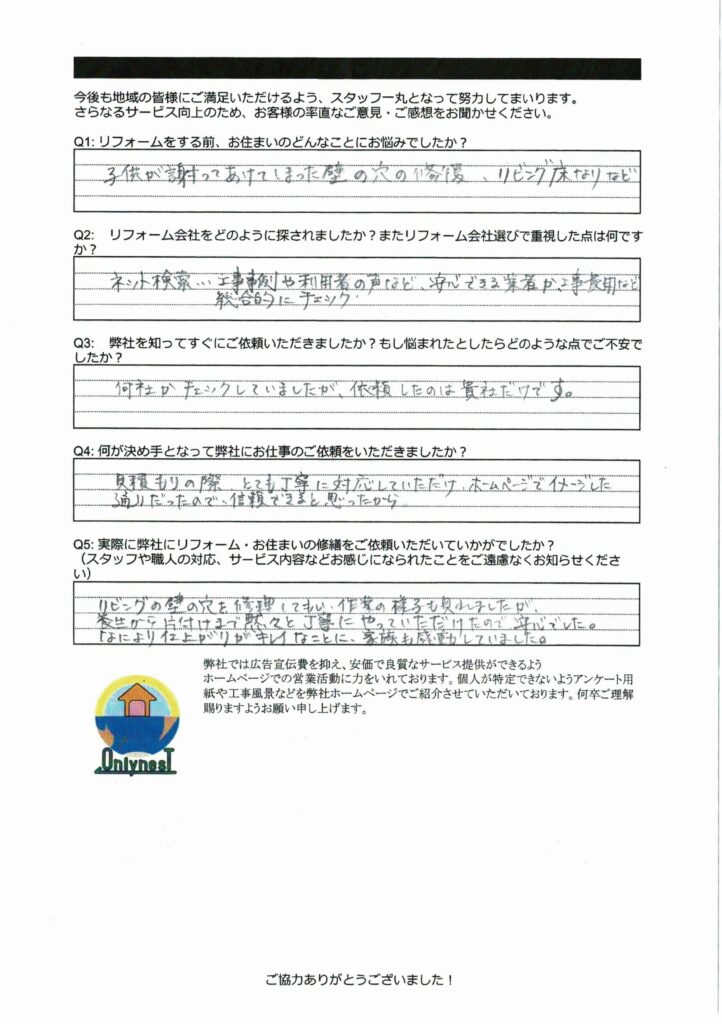 今後も地域の皆様にご満足いただけるよう、スタッフ一丸となって努力してまいります。
さらなるサービス向上のため、お客様の率直なご意見・ご感想をお聞かせください。
Q1: リフォームをする前、お住まいのどんなことにお悩みでしたか？
子供が謝ってあけてしまった壁の穴の修復、リビング床なりなど
Q2:　リフォーム会社をどのように探されましたか？またリフォーム会社選びで重視した点は何です
か？
ネット検索… 工事事例や利用者の声など、安心できる業者か、工事費用など
総合的にチェック
Q3:　弊社を知ってすぐにご依頼いただきましたか？もし悩まれたとしたらどのような点でご不安で
したか？
何社かチェックしていましたが、依頼したのは貴社だけです。
Q4: 何が決め手となって弊社にお仕事のご依頼をいただきましたか？
見積もりの際、とても丁寧に対応していただけ、ホームページでイメージした
通りだったので、信頼できると思ったから
Q5: 実際に弊社にリフォーム・お住まいの修繕をご依頼いただいていかがでしたか？
（スタッフや職人の対応、サービス内容などお感じになられたことをご遠慮なくお知らせくださ
い）
リビングの壁の穴を修理してもらい、作業の様子も見れましたが、
養生から片付けまで黙々と丁寧にやっていただけたので安心でした。
なにより仕上がりがキレイなことに、家族も感動していました。
弊社では広告宣伝費を抑え、安価で良質なサービス提供ができるよう
ホームページでの営業活動に力をいれております。個人が特定できないようアンケート用
紙や工事風景などを弊社ホームページでご紹介させていただいております。何卒ご理解
賜りますようお願い申し上げます。
OnlynesT
ご協力ありがとうございました！